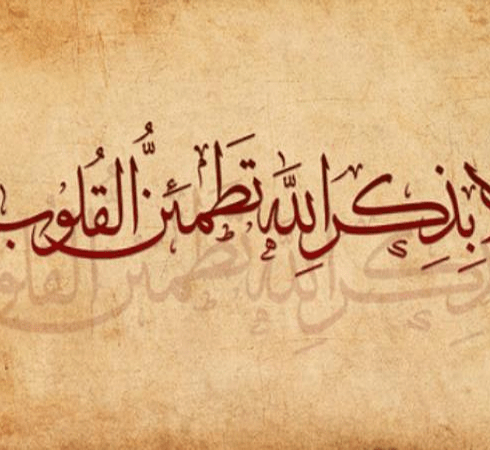 بِذِكْرِ اللَّهِ تَطْمَئِنُّ الْقُلُوبُ